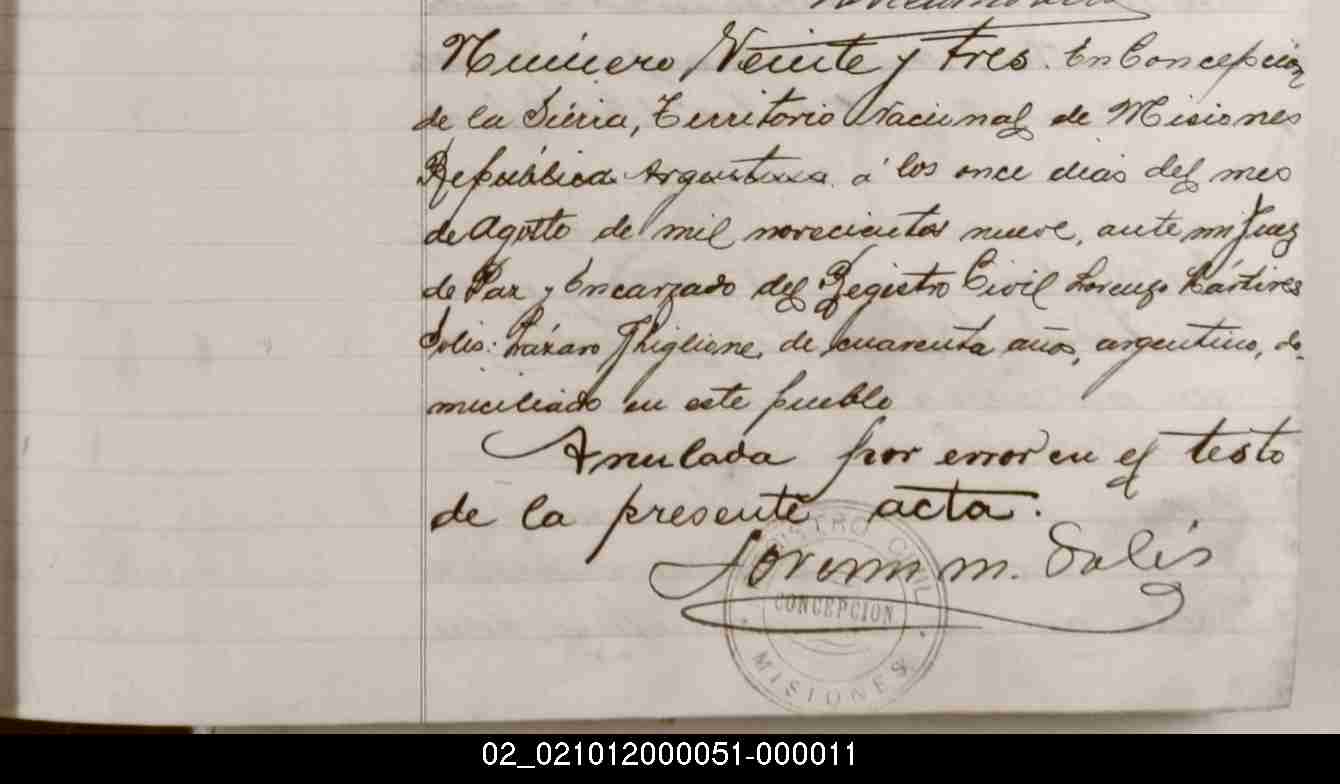 Número Veinte y tres. En Concepción
de la Sierra, Territorio Nacional de Misiones
República Argentina á los once dias del mes
de Agosto de mil novecientos nueve, ante mi Juez
de Paz y Encargado del Registro Civil Lorenzo Mártires
Solis: Lázaro Ghiglione, de cuarenta años, argentino, do-
miciliado en este pueblo
Anulada por error en el testo
de la presente acta.
Lorenzo M. Solís
REGISTRO CIVIL
CONCEPCION
MISIONES
02_021012000051-000011